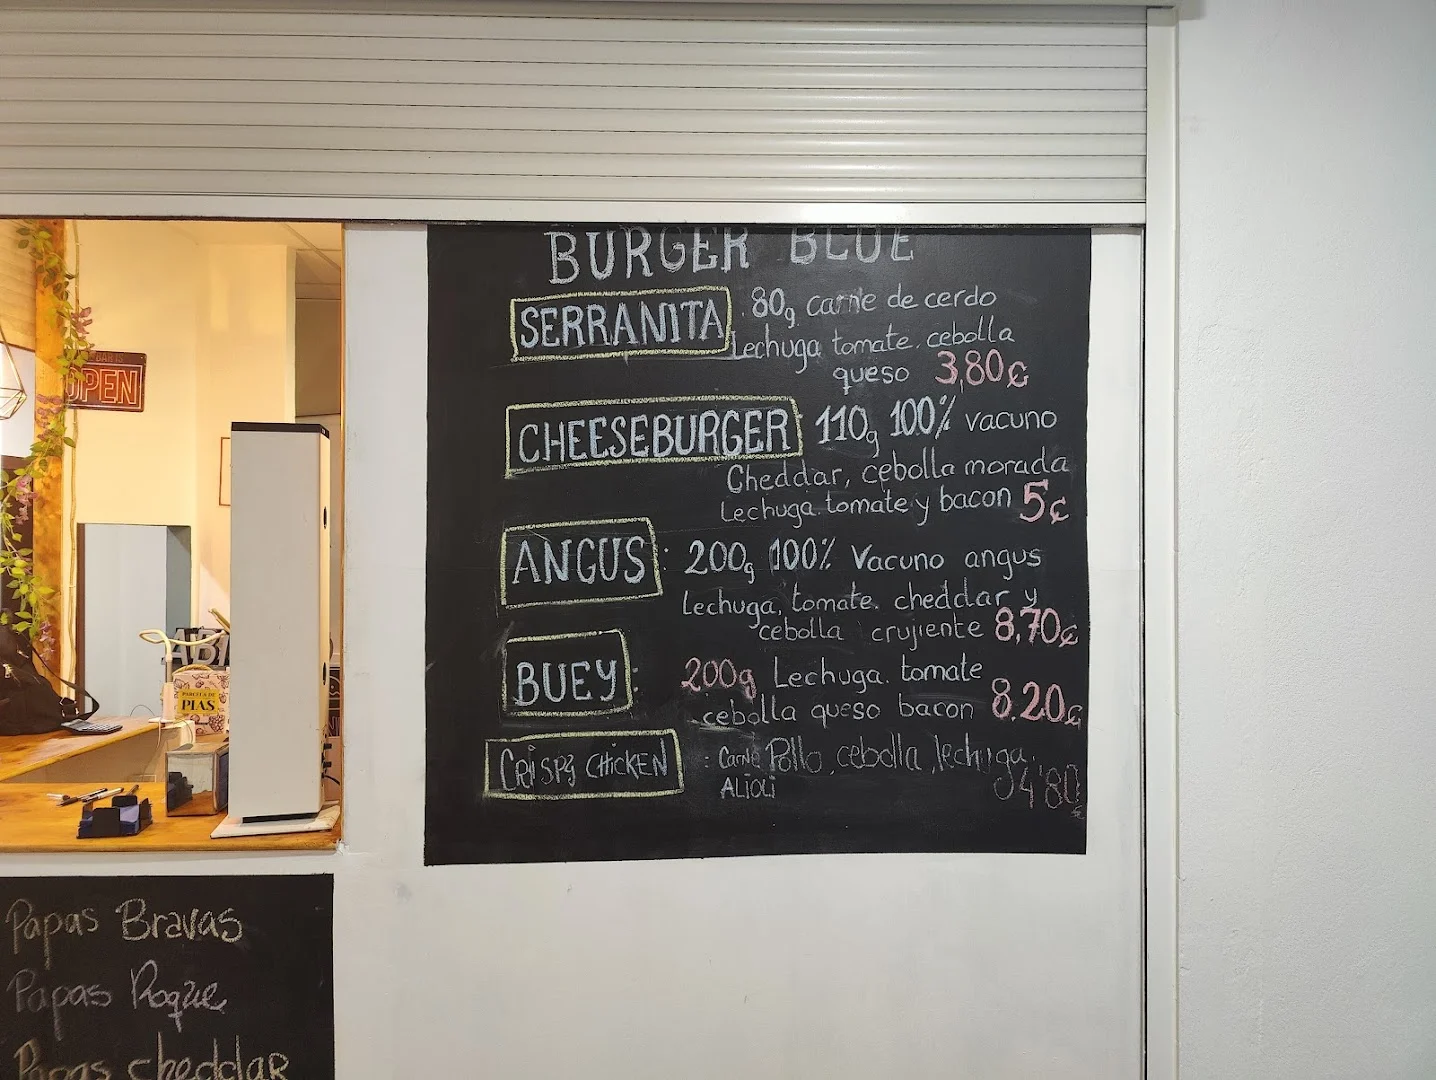 BURGER BLUE
SERRANITA 80g carne de cerdo
Lechuga tomate. cebolla
queso 3,80€
CHEESEBURGER 110g 100% vacuno
Cheddar, cebolla morada
Lechuga. tomate y bacon 5€
ANGUS: 200g 100% Vacuno angus
Lechuga, tomate. cheddar y
cebolla crujiente 8,70€
BUEY: 200g Lechuga. tomate
cebolla queso bacon 8.20€
CRISPY CHICKEN : Carne Pollo, cebolla, lechuga
ALIOLI 4'80€
OPEN
PIAS
Papas Bravas
Papas Roque
Papas cheddar